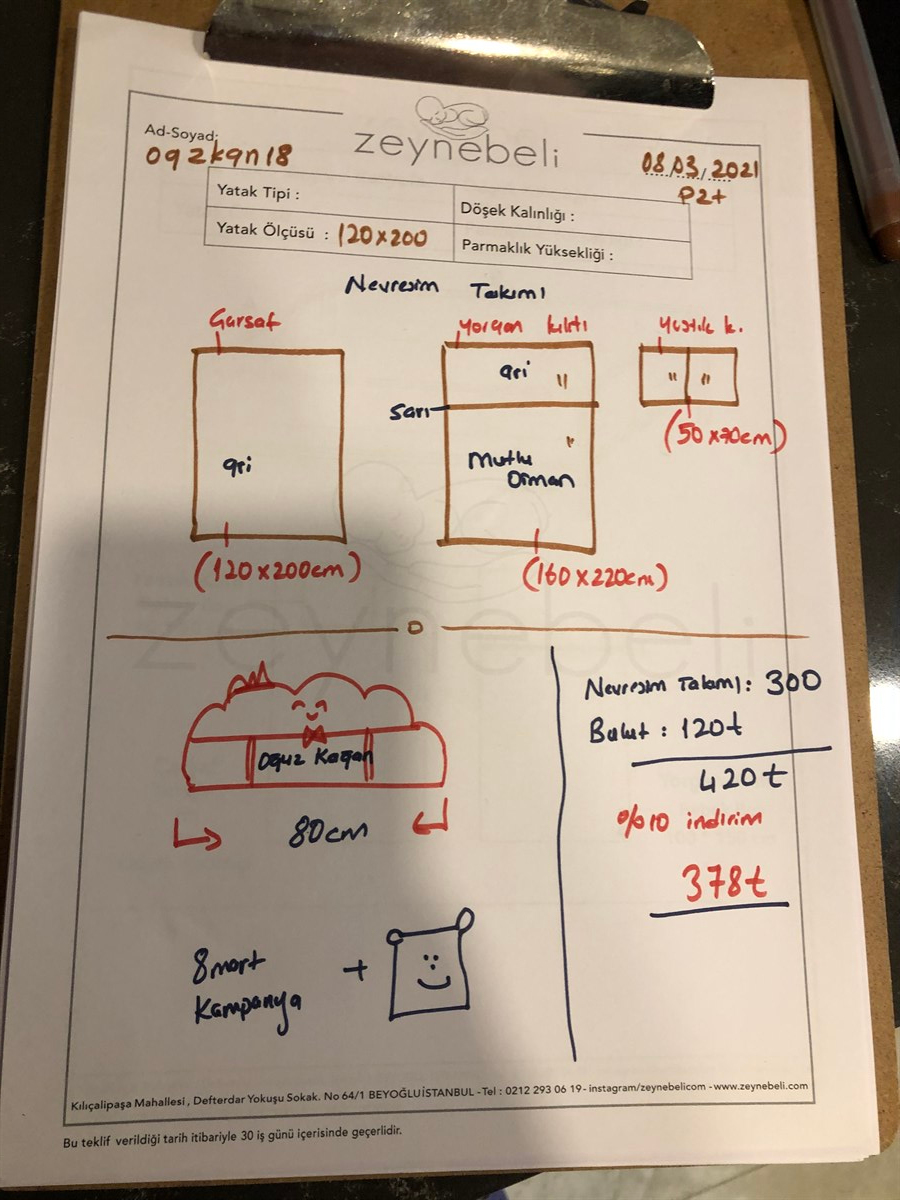 zeynebeli
Ad-Soyad:
ogzkgn18
08.03.2021
Pzt
Yatak Tipi :
Döşek Kalınlığı :
Yatak Ölçüsü : 120x200
Parmaklık Yüksekliği :
Nevresim Takımı
Çarşaf
Yorgan kılıfı
Yastık k.
gri "
" "
Sarı
(50x70cm)
gri
"
Mutlu
Orman
(120x200cm)
(160x220cm)
zeynebeli
Nevresim Takımı: 300
Bulut : 120t
Oğuz Kağan
420t
%10 indirim
80cm
378t
8 mart
+
Kampanya
Kılıçalipaşa Mahallesi , Defterdar Yokuşu Sokak. No 64/1 BEYOĞLUİSTANBUL - Tel : 0212 293 06 19 - instagram/zeynebelicom - www.zeynebeli.com
Bu teklif verildiği tarih itibariyle 30 iş günü içerisinde geçerlidir.